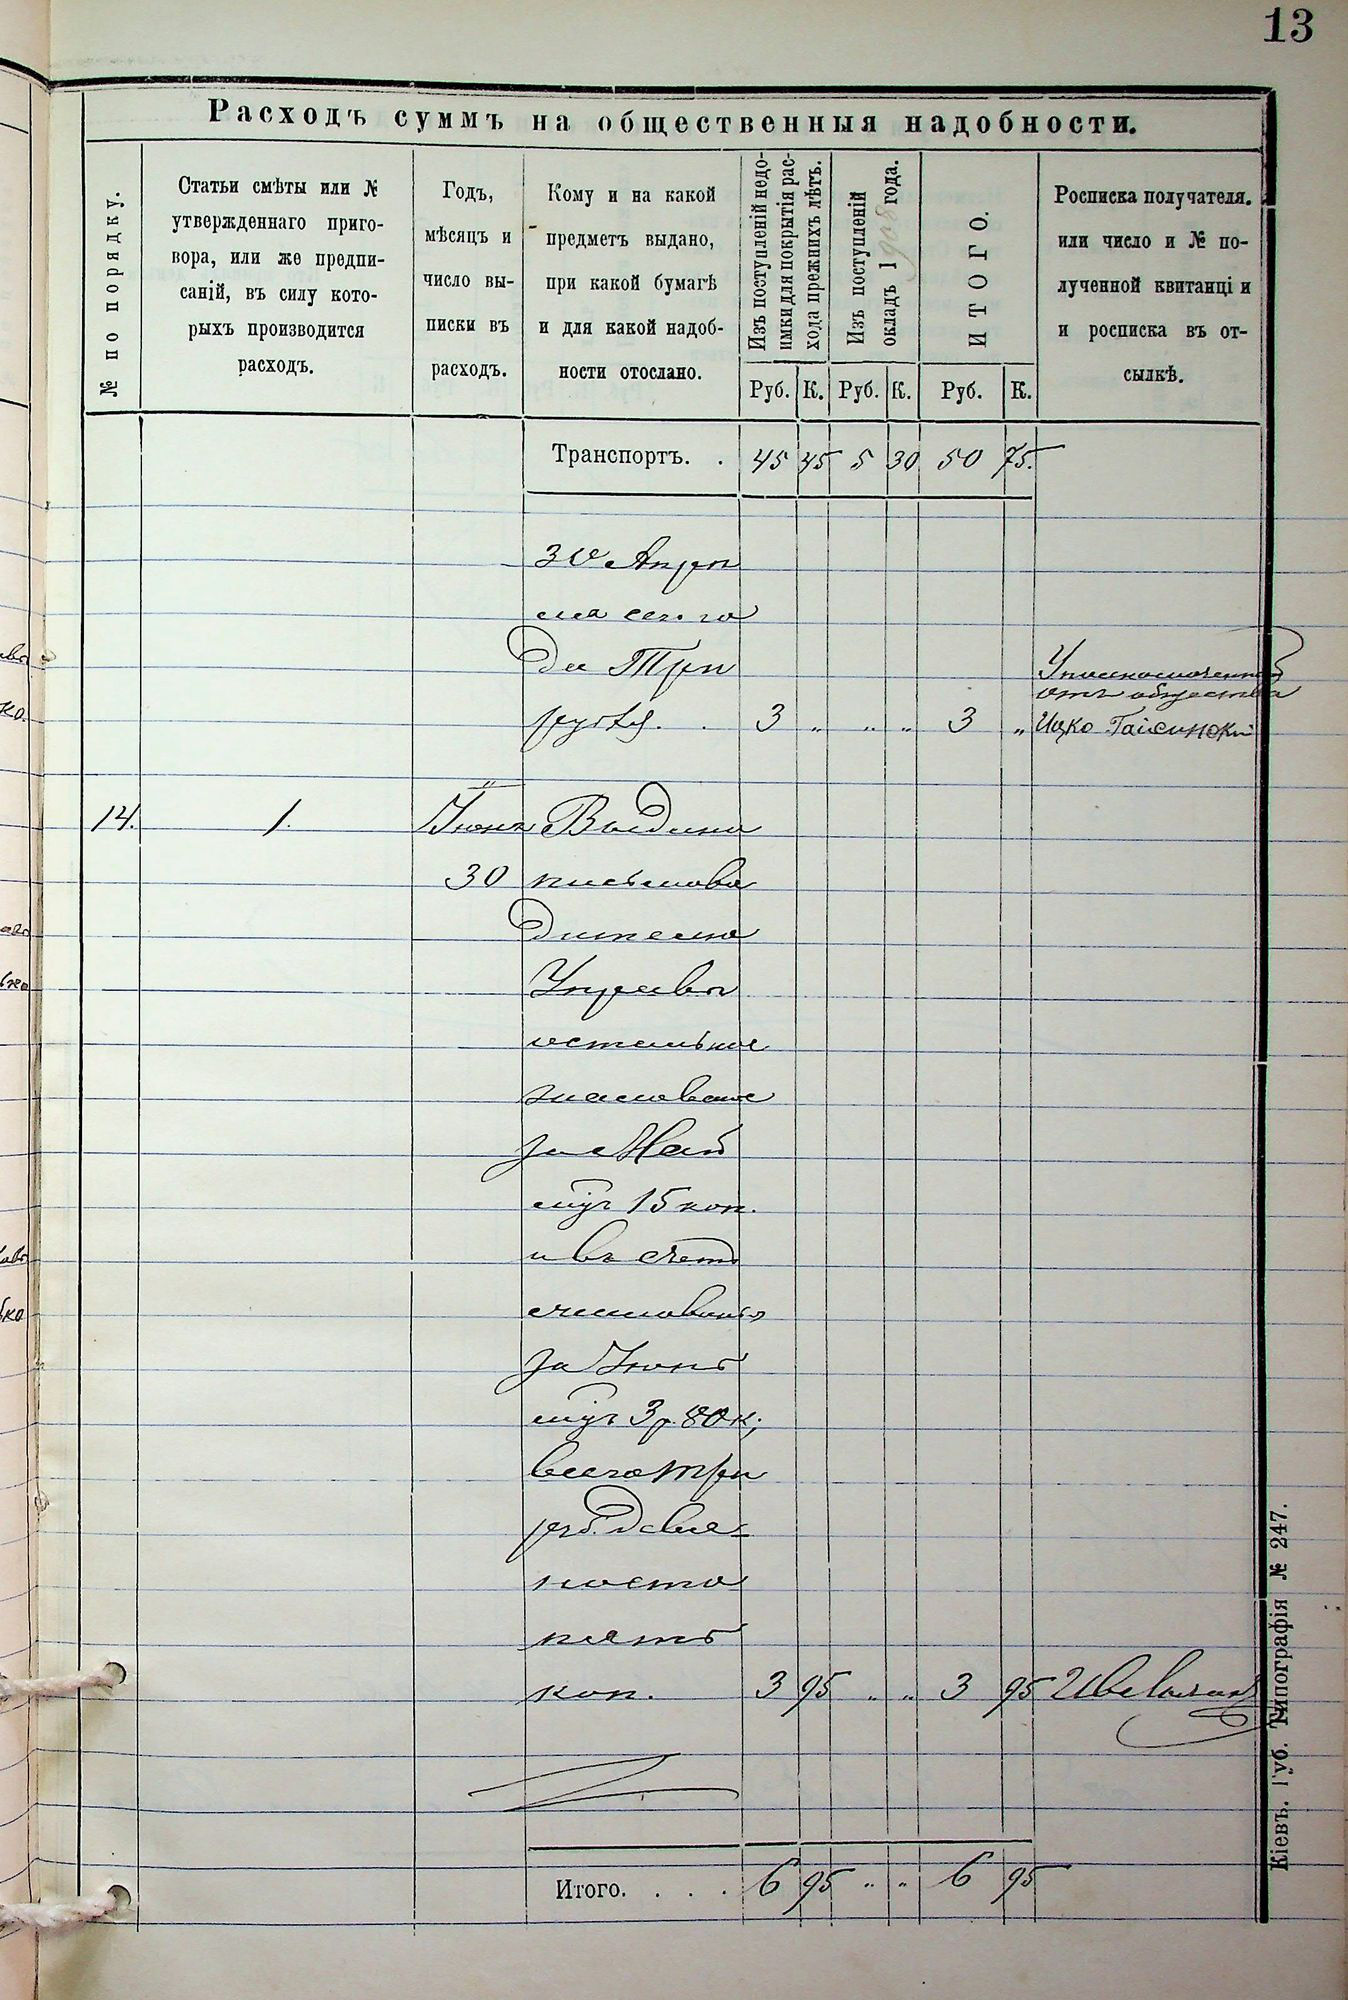 13
Расходъ суммъ на общественныя надобности.
№ по порядку.
Статьи смѣты или №
утвержденнаго приго-
вора, или же предпи-
саній, въ силу кото-
рыхъ производится
расходъ.
Годъ,
мѣсяцъ и
число вы-
писки въ
расходъ.
Кому и на какой
предметъ выдано,
при какой бумагѣ
и для какой надоб-
ности отослано.
Изъ поступленій недо-
имки для покрытія рас-
хода прежнихъ лѣтъ.
Изъ поступленій
окладъ 1908 года.
ИТОГО.
Росписка получателя.
или число и № по-
лученной квитанціи
и росписка въ от-
сылкѣ.
Руб. К. Руб. К. Руб. К.
Транспортъ. . 45 45 5 30 50 75.
30 Апрѣ
ля сего го
да Три
рубля. . 3 „ „ „ 3 „
Уполномоченный
отъ общества
Ицко Гайсинскій
14. 1. Іюнь Выдано
30 письмово
дителю
Управы
остальное
жалованіе
за Май
м-цъ 15 коп.
и въ счетъ
жалованья
за Іюнь
м-цъ 3 р. 80 к;
всего три
руб. девя-
носто
пять
коп. 3 95 „ „ 3 95
Итого. . . . 6 95 „ „ 6 95
Кіевъ. Губ. Типографія № 247.